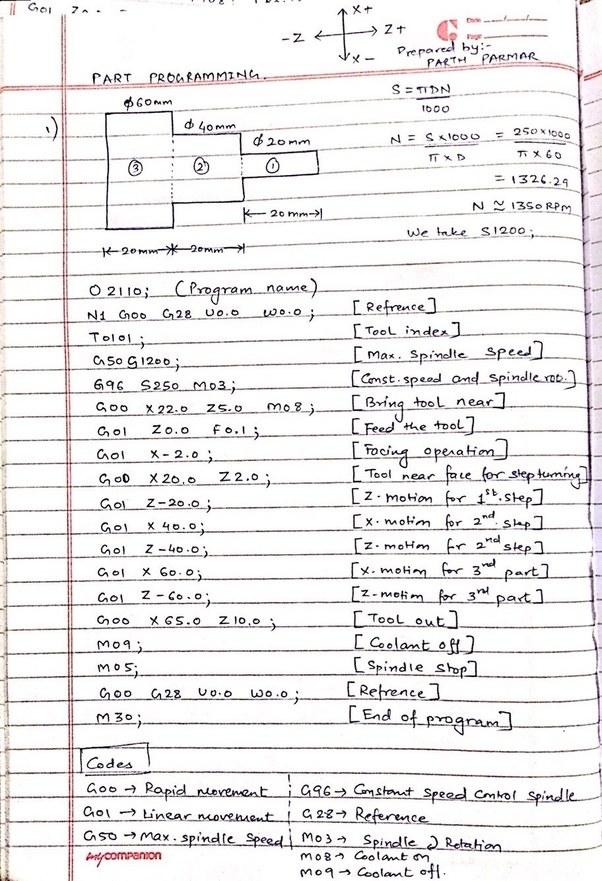 G01
X+
-Z Z+
X-
Date
Page
Prepared by:-
PARTH PARMAR
PART PROGRAMMING.
1)
ɸ60mm
ɸ40mm
ɸ20mm
③ ② ①
20mm
20mm 20mm
S = ΠDN / 1000
N = S×1000 / Π×D = 250×1000 / Π×60
= 1326.29
N ≈ 1350 RPM
We take S1200;
O2110; (Program name)
N1 G00 G28 U0.0 W0.0; [Refrence]
T0101; [Tool index]
G50 G1200; [Max. Spindle Speed]
G96 S250 M03; [Const. speed and spindle rot.]
G00 X22.0 Z5.0 M08; [Bring tool near]
G01 Z0.0 F0.1; [Feed the tool]
G01 X-2.0; [Facing operation]
G00 X20.0 Z2.0; [Tool near face for step turning]
G01 Z-20.0; [Z-motion for 1st. step]
G01 X40.0; [X-motion for 2nd. step]
G01 Z-40.0; [Z-motion for 2nd step]
G01 X60.0; [X-motion for 3rd part]
G01 Z-60.0; [Z-motion for 3rd part]
G00 X65.0 Z10.0; [Tool out]
M09; [Coolant off]
M05; [Spindle stop]
G00 G28 U0.0 W0.0; [Refrence]
M30; [End of program]
Codes
G00 → Rapid movement G96 → Constant Speed Control Spindle
G01 → Linear movement G28 → Reference
G50 → Max. spindle speed M03 → Spindle Rotation
M08 → Coolant on
M09 → Coolant off.
my companion